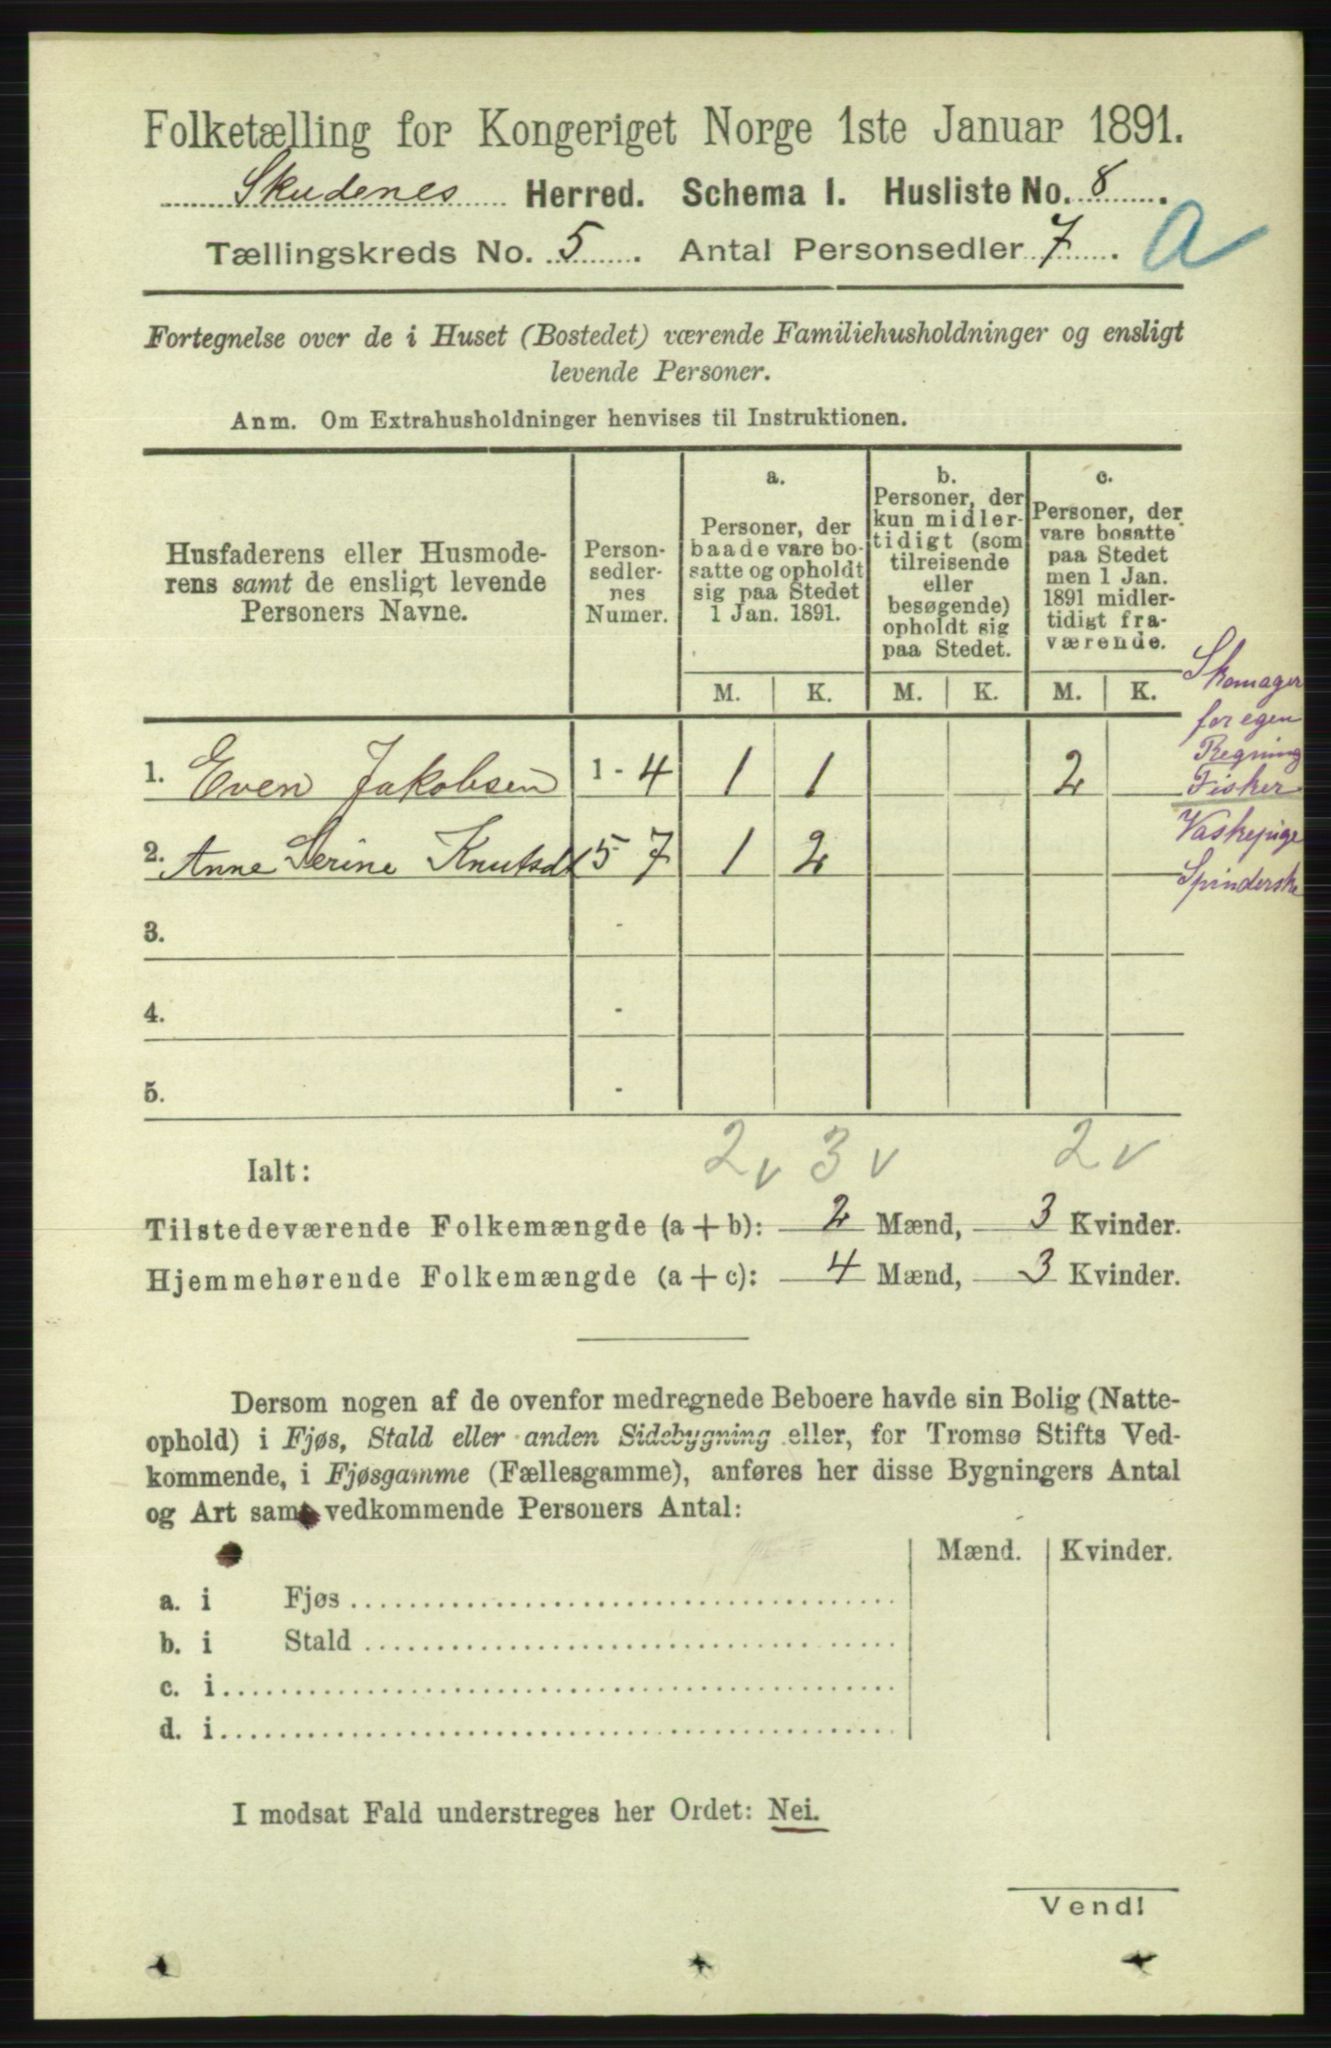 Folketælling for Kongeriget Norge 1ste Januar 1891.
Skudenes Herred. Schema I. Husliste No. 8.
Tællingskreds No. 5. Antal Personsedler 7. a
Fortegnelse over de i Huset (Bostedet) værende Familiehusholdninger og ensligt
levende Personer.
Anm. Om Extrahusholdninger henvises til Instruktionen.
Husfaderens eller Husmode-
rens samt de ensligt levende
Personers Navne.
Person-
sedler-
nes
Numer.
a.
Personer, der
baade vare bo-
satte og opholdt
sig paa Stedet
1 Jan. 1891.
b.
Personer, der
kun midler-
tidigt (som
tilreisende
eller
besøgende)
opholdt sig
paa Stedet.
c.
Personer, der
vare bosatte
paa Stedet
men 1 Jan.
1891 midler-
tidigt fra-
værende.
M. K. M. K. M. K.
Skomager
for egen
Regning
Fisker
Vaskepige
Spinderske
1. Even Jakobsen 1 - 4 1 1 2
2. Anne Serine Knutsd 5 7 1 2
3. -
4. -
5. -
Ialt: 2 v 3 v 2 v
Tilstedeværende Folkemængde (a + b): 2 Mænd, 3 Kvinder.
Hjemmehørende Folkemængde (a + c): 4 Mænd, 3 Kvinder.
Dersom nogen af de ovenfor medregnede Beboere havde sin Bolig (Natte-
ophold) i Fjøs, Stald eller anden Sidebygning eller, for Tromsø Stifts Ved-
kommende, i Fjøsgamme (Fællesgamme), anføres her disse Bygningers Antal
og Art samt vedkommende Personers Antal:
Mænd. Kvinder.
a. i Fjøs
b. i Stald
c. i
d. i
I modsat Fald understreges her Ordet: Nei.
Vend!